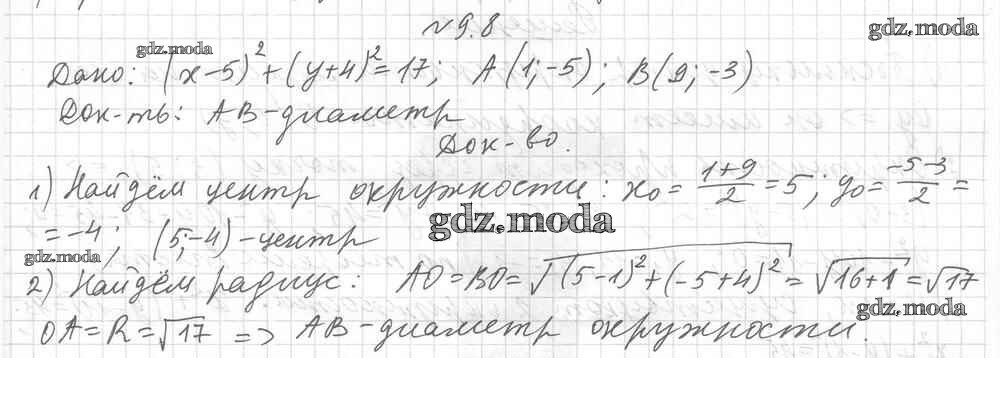 №9.8
gdz.moda
gdz.moda
Дано: (x-5)²+(y+4)²=17; A(1;-5); B(9;-3)
Док-ть: AB-диаметр
Док-во.
1) Найдём центр окружности: x₀=(1+9)/2=5; y₀=(-5-3)/2=
gdz.moda
=-4; (5;-4)-центр
gdz.moda
2) Найдём радиус: AO=BO=√((5-1)²+(-5+4)²)=√(16+1)=√17
gdz.moda
OA=R=√17 => AB-диаметр окружности.